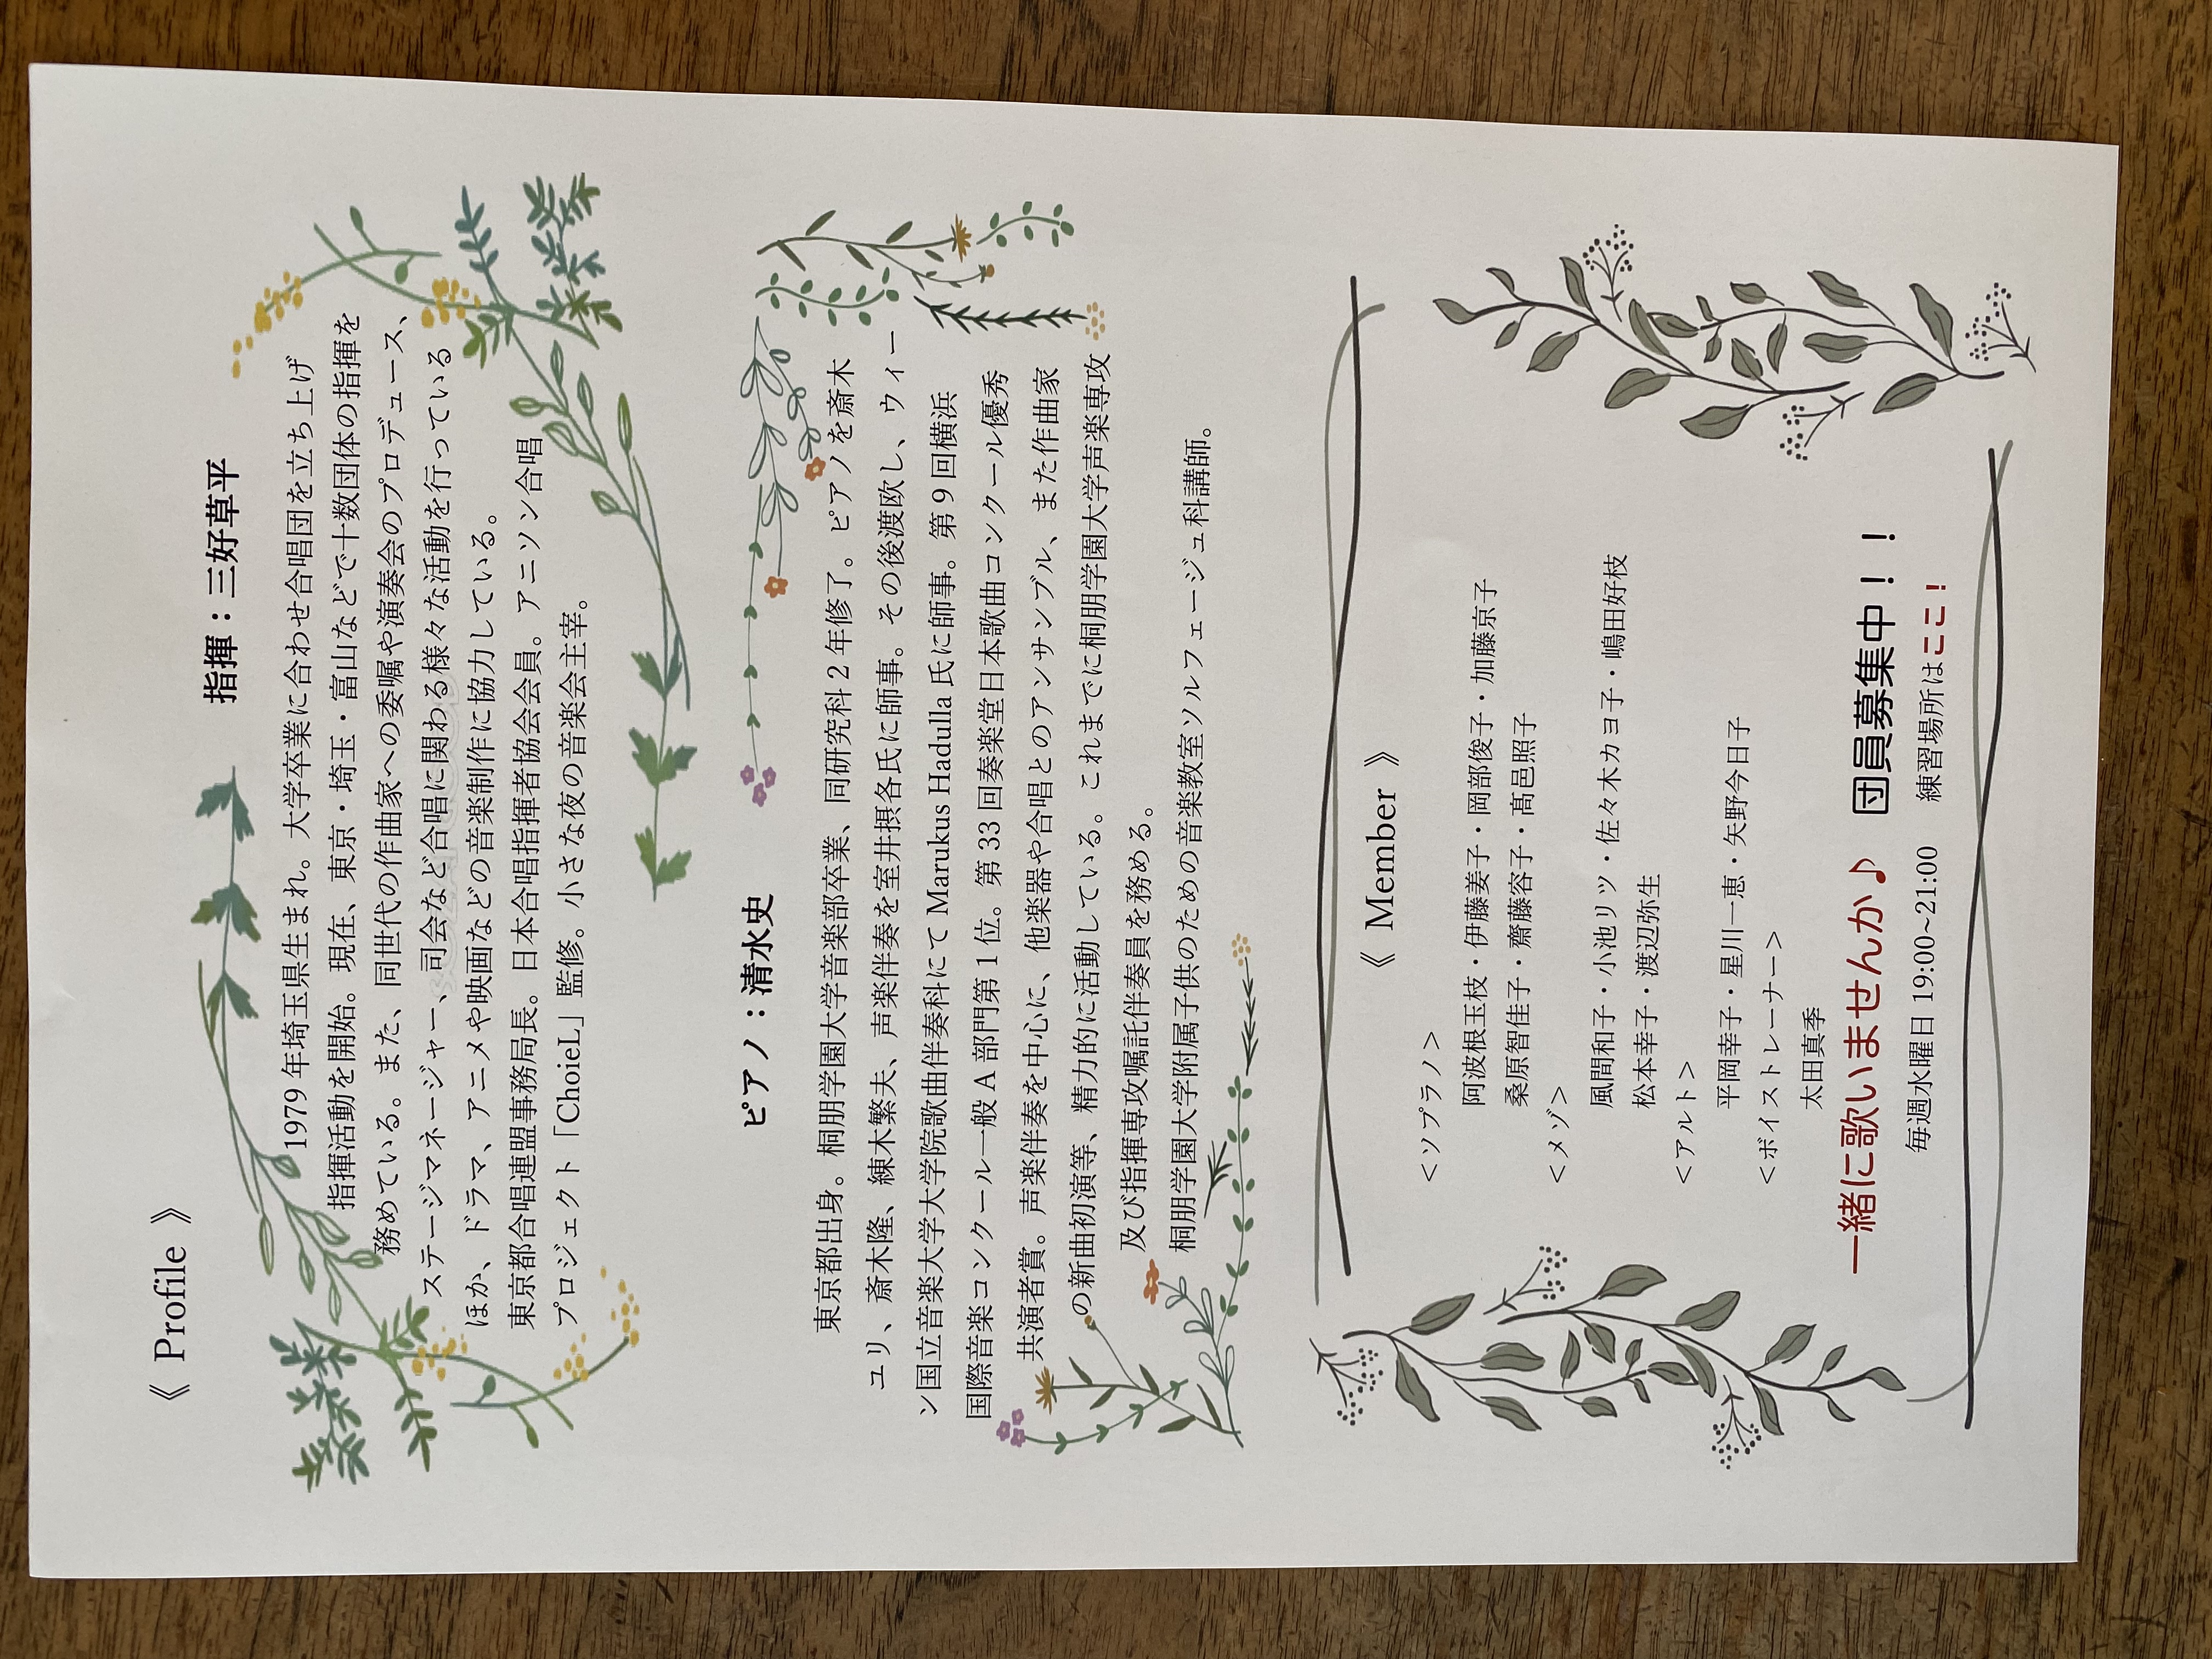 《 Profile 》
指揮：三好草平
1979 年埼玉県生まれ。大学卒業に合わせ合唱団を立ち上げ
指揮活動を開始。現在、東京・埼玉・富山などで十数団体の指揮を
務めている。また、同世代の作曲家への委嘱や演奏会のプロデュース、
ステージマネージャー、司会など合唱に関わる様々な活動を行っている
ほか、ドラマ、アニメや映画などの音楽制作に協力している。
東京都合唱連盟事務局長。日本合唱指揮者協会会員。アニソン合唱
プロジェクト「ChoieL」監修。小さな夜の音楽会主宰。
ピアノ：清水史
東京都出身。桐朋学園大学音楽部卒業、同研究科 2 年修了。ピアノを斎木
ユリ、斎木隆、練木繁夫、声楽伴奏を室井摂各氏に師事。その後渡欧し、ウィー
ン国立音楽大学大学院歌曲伴奏科にて Marukus Hadulla 氏に師事。第 9 回横浜
国際音楽コンクール一般 A 部門第 1 位。第 33 回奏楽堂日本歌曲コンクール優秀
共演者賞。声楽伴奏を中心に、他楽器や合唱とのアンサンブル、また作曲家
の新曲初演等、精力的に活動している。これまでに桐朋学園大学声楽専攻
及び指揮専攻嘱託伴奏員を務める。
桐朋学園大学附属子供のための音楽教室ソルフェージュ科講師。
《 Member 》
＜ソプラノ＞
阿波根玉枝・伊藤姜子・岡部俊子・加藤京子
桑原智佳子・齋藤容子・髙邑照子
＜メゾ＞
風間和子・小池リツ・佐々木カヨ子・嶋田好枝
松本幸子・渡辺弥生
＜アルト＞
平岡幸子・星川一恵・矢野今日子
＜ボイストレーナー＞
太田真季
一緒に歌いませんか♪ 団員募集中！！
毎週水曜日 19:00~21:00 練習場所はここ！